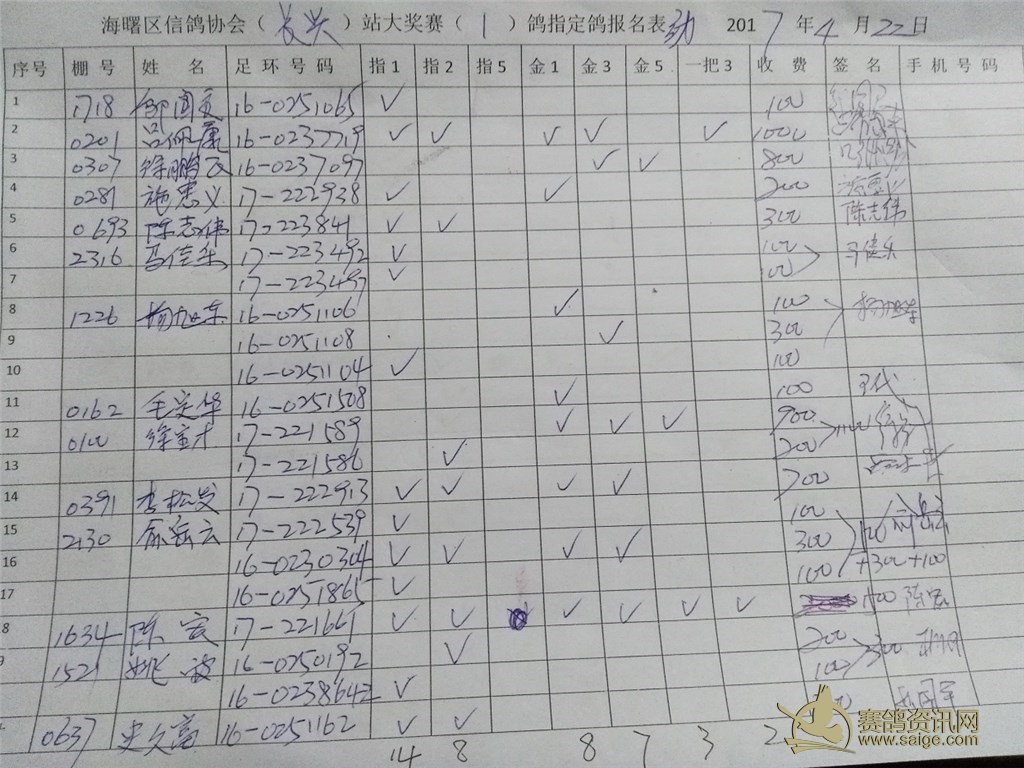 海曙区信鸽协会（长兴）站大奖赛（1）鸽指定鸽报名表 2017年4月22日
序号 棚号 姓名 足环号码 指1 指2 指5 金1 金3 金5 一把3 收费 签名 手机号码
1 1718 16-0251065 ✓ 100
2 0201 16-0237719 ✓ ✓ ✓ ✓ ✓ 1000
3 0307 徐鹏飞 16-0237097 ✓ ✓ 800
4 0281 施惠义 17-222938 ✓ ✓ 200 施惠义
5 0693 陈志伟 17-223841 ✓ ✓ 300 陈志伟
6 2316 马佳乐 17-223492 ✓ 100 马佳乐
7 17-223497 ✓ 100
8 1226 杨旭东 16-0251106 ✓ 100 杨旭东
9 16-0251108 ✓ 300
10 16-0251104 ✓ 100
11 0162 毛定华 16-0251508 ✓ 100
12 0100 17-221589 ✓ ✓ ✓ 900
13 17-221586 ✓ 200
14 0391 李松发 17-222913 ✓ ✓ ✓ ✓ 700
15 2130 17-222539 ✓ 100
16 16-0230304 ✓ ✓ ✓ ✓ 300 +300+100
17 16-0251865 ✓ 100
8 1634 陈宏 17-221661 ✓ ✓ ✓ ✓ ✓ ✓ 陈宏
9 1521 姚波 16-0250192 ✓ 200 300
16-0238642 ✓ 100
0637 史久亮 16-0251162 ✓ ✓
14 8 8 7 3 2
赛鸽资讯网
www.saige.com